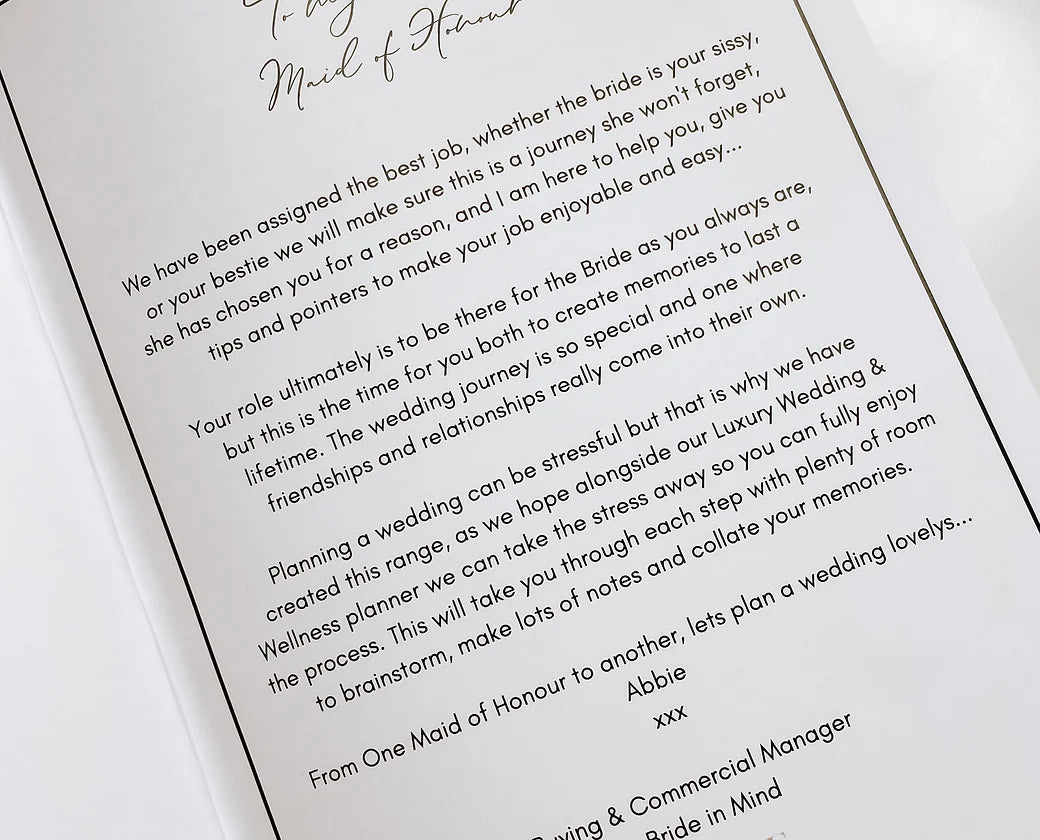 To my
Maid of Honour
We have been assigned the best job, whether the bride is your sissy,
or your bestie we will make sure this is a journey she won't forget,
she has chosen you for a reason, and I am here to help you, give you
tips and pointers to make your job enjoyable and easy...
Your role ultimately is to be there for the Bride as you always are,
but this is the time for you both to create memories to last a
lifetime. The wedding journey is so special and one where
friendships and relationships really come into their own.
Planning a wedding can be stressful but that is why we have
created this range, as we hope alongside our Luxury Wedding &
Wellness planner we can take the stress away so you can fully enjoy
the process. This will take you through each step with plenty of room
to brainstorm, make lots of notes and collate your memories.
From One Maid of Honour to another, lets plan a wedding lovelys...
Abbie
xxx
Buying & Commercial Manager
Bride in Mind